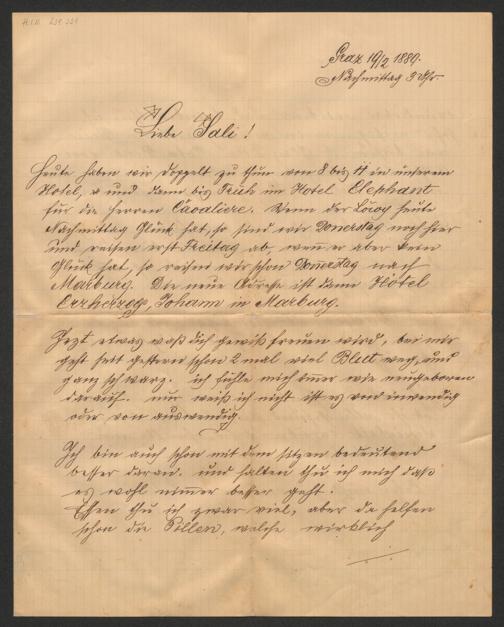 Graz 19/2 1889.
Nachmittag 3 Uhr
Liebe Sali!
Heute haben wir doppelt zu thun von 8 bis 11 in unserem
Hotel, und dann bis Früh im Hotel Elephant
für die Herren Cavaliere. Wenn der Löwy heute
Nachmittag Glück hat, so sind wir Donerstag noch hier
und reisen erst Freitag ab, wenn er aber kein
Glück hat, so reisen wir schon Donerstag nach
Marburg. Die neue Adresse ist dann Hôtel
Erzherzog Johann in Marburg.
Jezt etwas waß dich gewiß freuen wird, bei mir
geht seit gestern schon 2 mal viel Blut weg, und
ganz schwarz. ich fühle mich immer wie neugeboren
darauf. nur weiß ich nicht ist es von inwendig
oder von auswendig.
Ich bin auch schon mit dem sitzen bedeutend
besser daran. und halten thu ich mich daß
es wohl nimmer besser geht.
Essen thu ich zwar viel, aber da helfen
schon die Pillen, welche wirklich